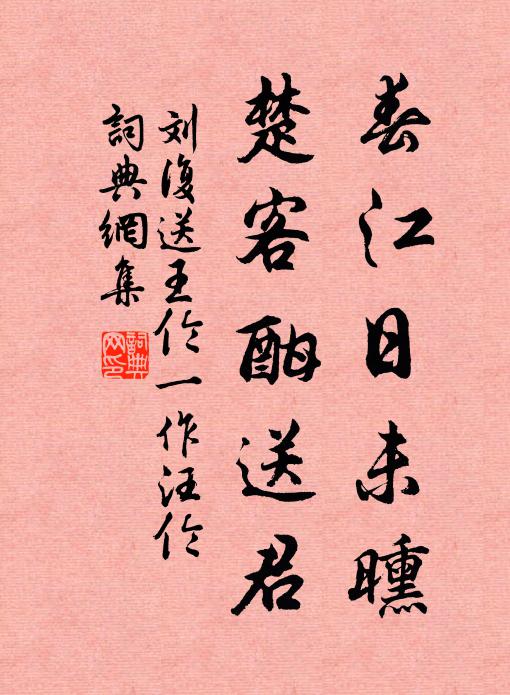 春江日未曛
楚客酣送君
刘復送王伦一作汪伦
詞典網集
詞典网印